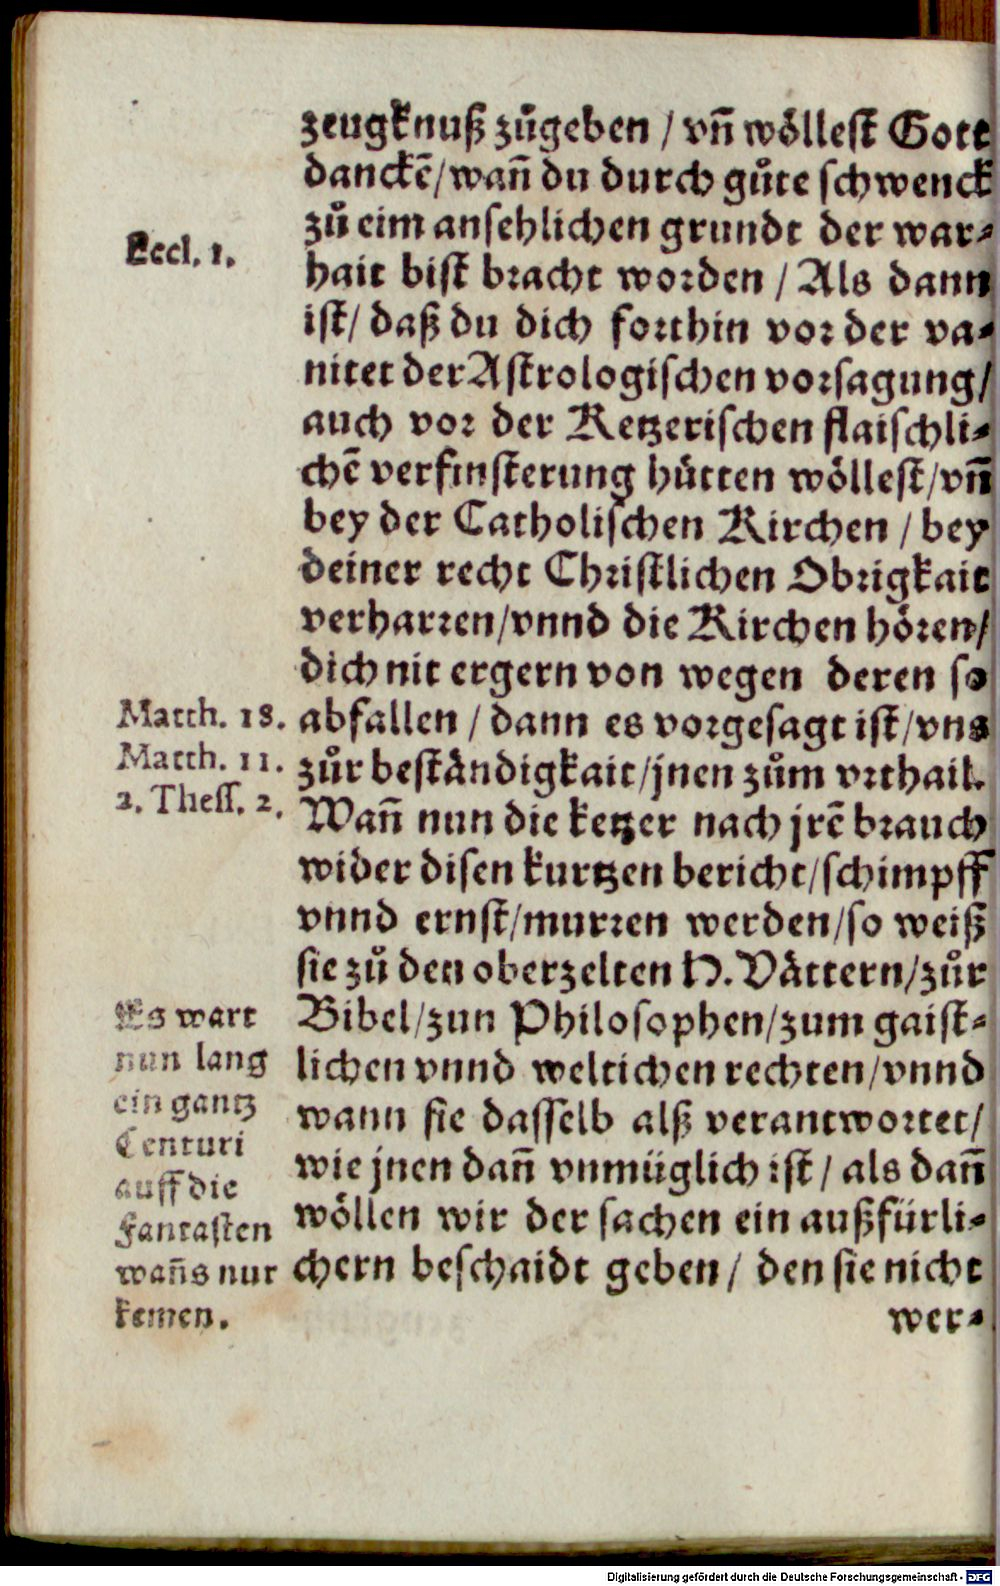 zeugknuß zůgeben / vn̄ wöllest Gott
danckē/wañ du durch gůte schwenck
zů eim ansehlichen grundt der war⸗
hait bist bracht worden / Als dann
ist/ daß du dich forthin vor der va⸗
nitet der Astrologischen vorsagung/
auch vor der Ketzerischen flaischli⸗
chē verfinsterung hütten wöllest/vn̄
bey der Catholischen Kirchen / bey
deiner recht Christlichen Obrigkait
verharren/vnnd die Kirchen hören/
dich nit ergern von wegen deren so
abfallen / dann es vorgesagt ist/vns
zůr beständigkait/jnen zům vrthail.
Wañ nun die ketzer nach jrē brauch
wider disen kurtzen bericht/schimpff
vnnd ernst/murren werden/so weiß
sie zů den oberzelten H. Vättern/zůr
Bibel/zun Philosophen/zum gaist⸗
lichen vnnd weltichen rechten/vnnd
wann sie dasselb alß verantwortet/
wie jnen dañ vnmüglich ist / als dañ
wöllen wir der sachen ein außfürli⸗
chern beschaidt geben / den sie nicht
wer⸗
Eccl. 1.
Matth. 18.
Matth. 11.
2. Thess. 2.
Es wart
nun lang
ein gantz
Centuri
auff die
Fantasten
wañs nur
kemen.
Digitalisierung gefördert durch die Deutsche Forschungsgemeinschaft - DFG